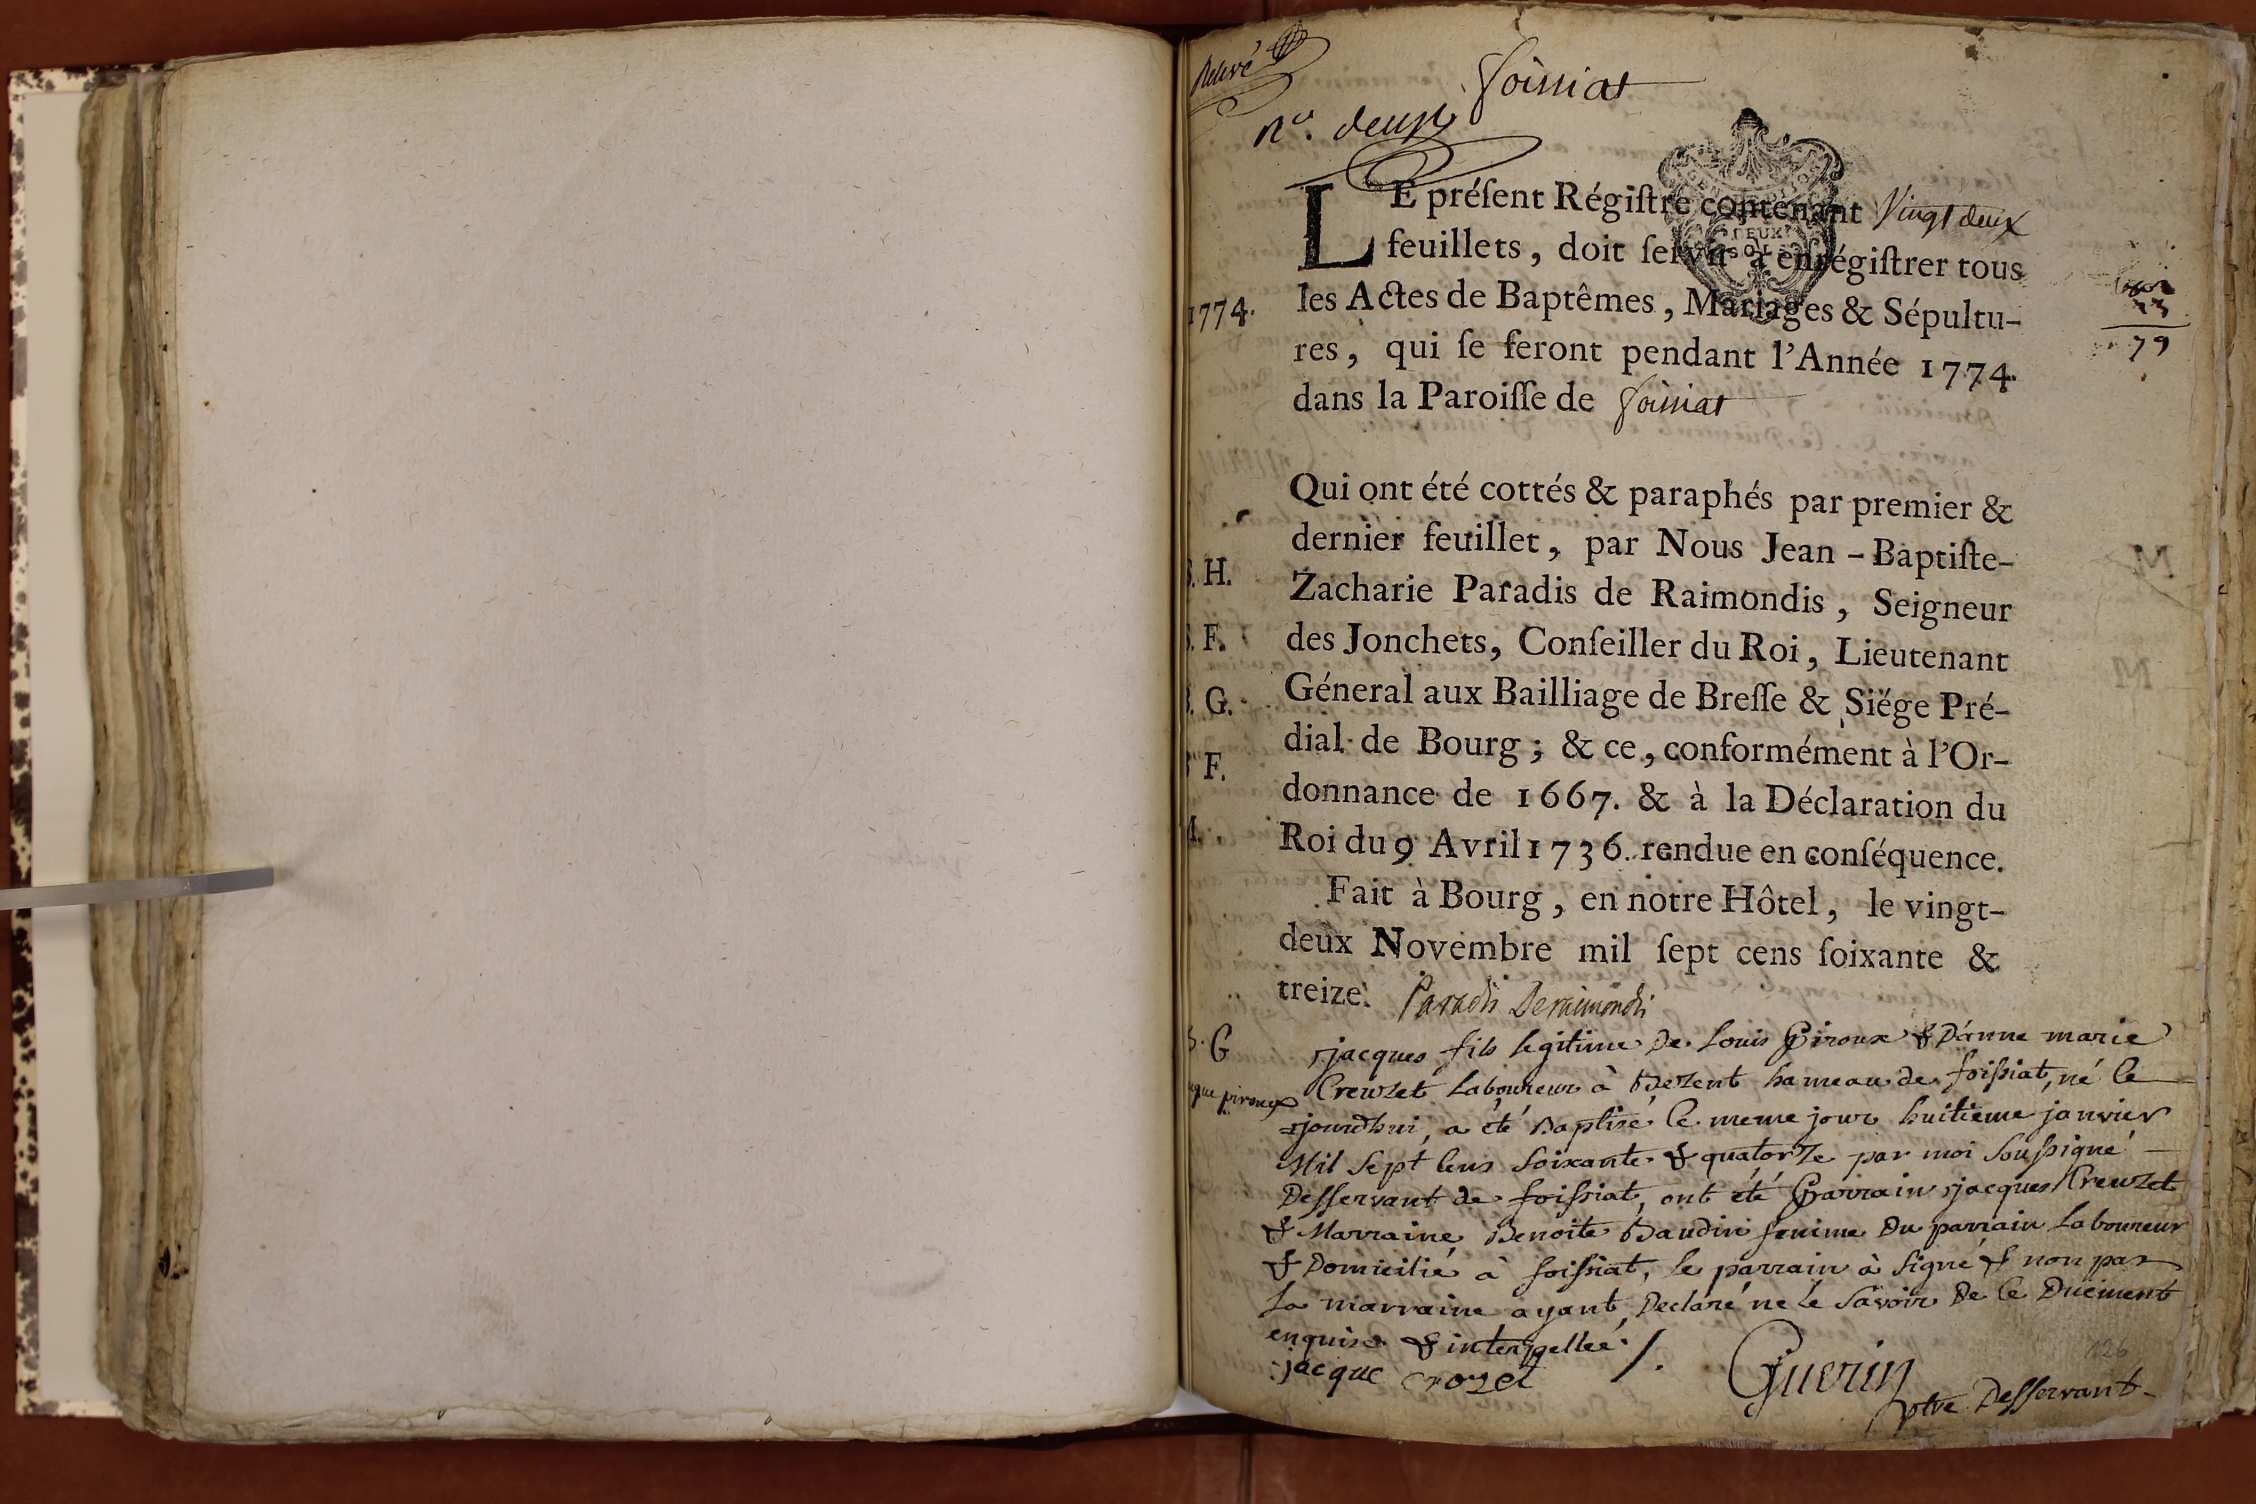 Relevé
foissiat
n.º deux
LE préſent Régiſtre contenant Vingt deux
feuillets, doit ſervir à enrégiſtrer tous
1774.
les Actes de Baptêmes, Mariages & Sépultu-
res, qui ſe feront pendant l'Année 1774.
dans la Paroiſſe de foissiat
79
DEUX
SOLS
Qui ont été cottés & paraphés par premier &
dernier feuillet, par Nous Jean-Baptiſte-
Zacharie Paradis de Raimondis, Seigneur
des Jonchets, Conſeiller du Roi, Lieutenant
Géneral aux Bailliage de Breſſe & Siége Pré-
dial de Bourg; & ce, conformément à l'Or-
donnance de 1667. & à la Déclaration du
Roi du 9 Avril 1736. rendue en conſéquence.
Fait à Bourg, en notre Hôtel, le vingt-
deux Novembre mil ſept cens ſoixante &
treize. Paradis Deraimondis
H.
F.
G.
F.
G
jacques fils legitime De Louis Piroux & D'anne marie
Creuzet Laboureur à Bezent hameau de foissiat, né le
jourd'hui, a été Baptisé le meme jour huitieme janvier
Mil Sept Cens Soixante & quatorze par moi Soussigné
Desservant de foissiat, ont été Parrain jacques Creuzet
& Marraine Benoite Baudin femme Du parrain Laboureur
& Domicilié à foissiat, le parrain à signé & non pas
La marraine ayant Declaré ne le Savoir De Ce Duement
enquise & interpellée ./.
jacque crozet
Guerin
ptre Desservant
piroux
126